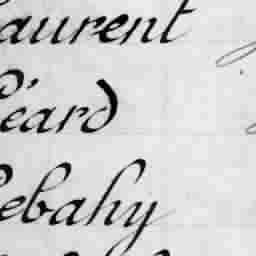 Laurent
Péard
Lebahy